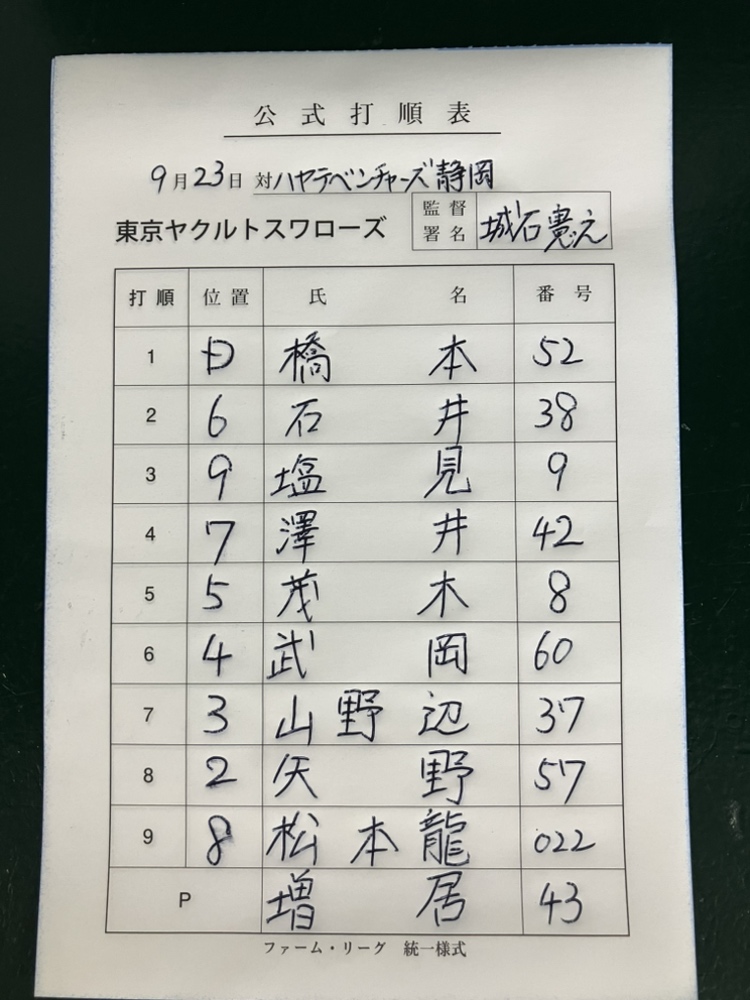 公式打順表
9月23日 対ハヤテベンチャーズ静岡
東京ヤクルトスワローズ 監督署名 城石憲之
打順 位置 氏名 番号
1 D 橋本 52
2 6 石井 38
3 9 塩見 9
4 7 澤井 42
5 5 茂木 8
6 4 武岡 60
7 3 山野辺 37
8 2 矢野 57
9 8 松本龍 022
P 増居 43
ファーム・リーグ 統一様式